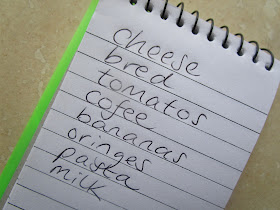 cheese
bred
tomatos
cofee
bananas
oringes
pasta
milk